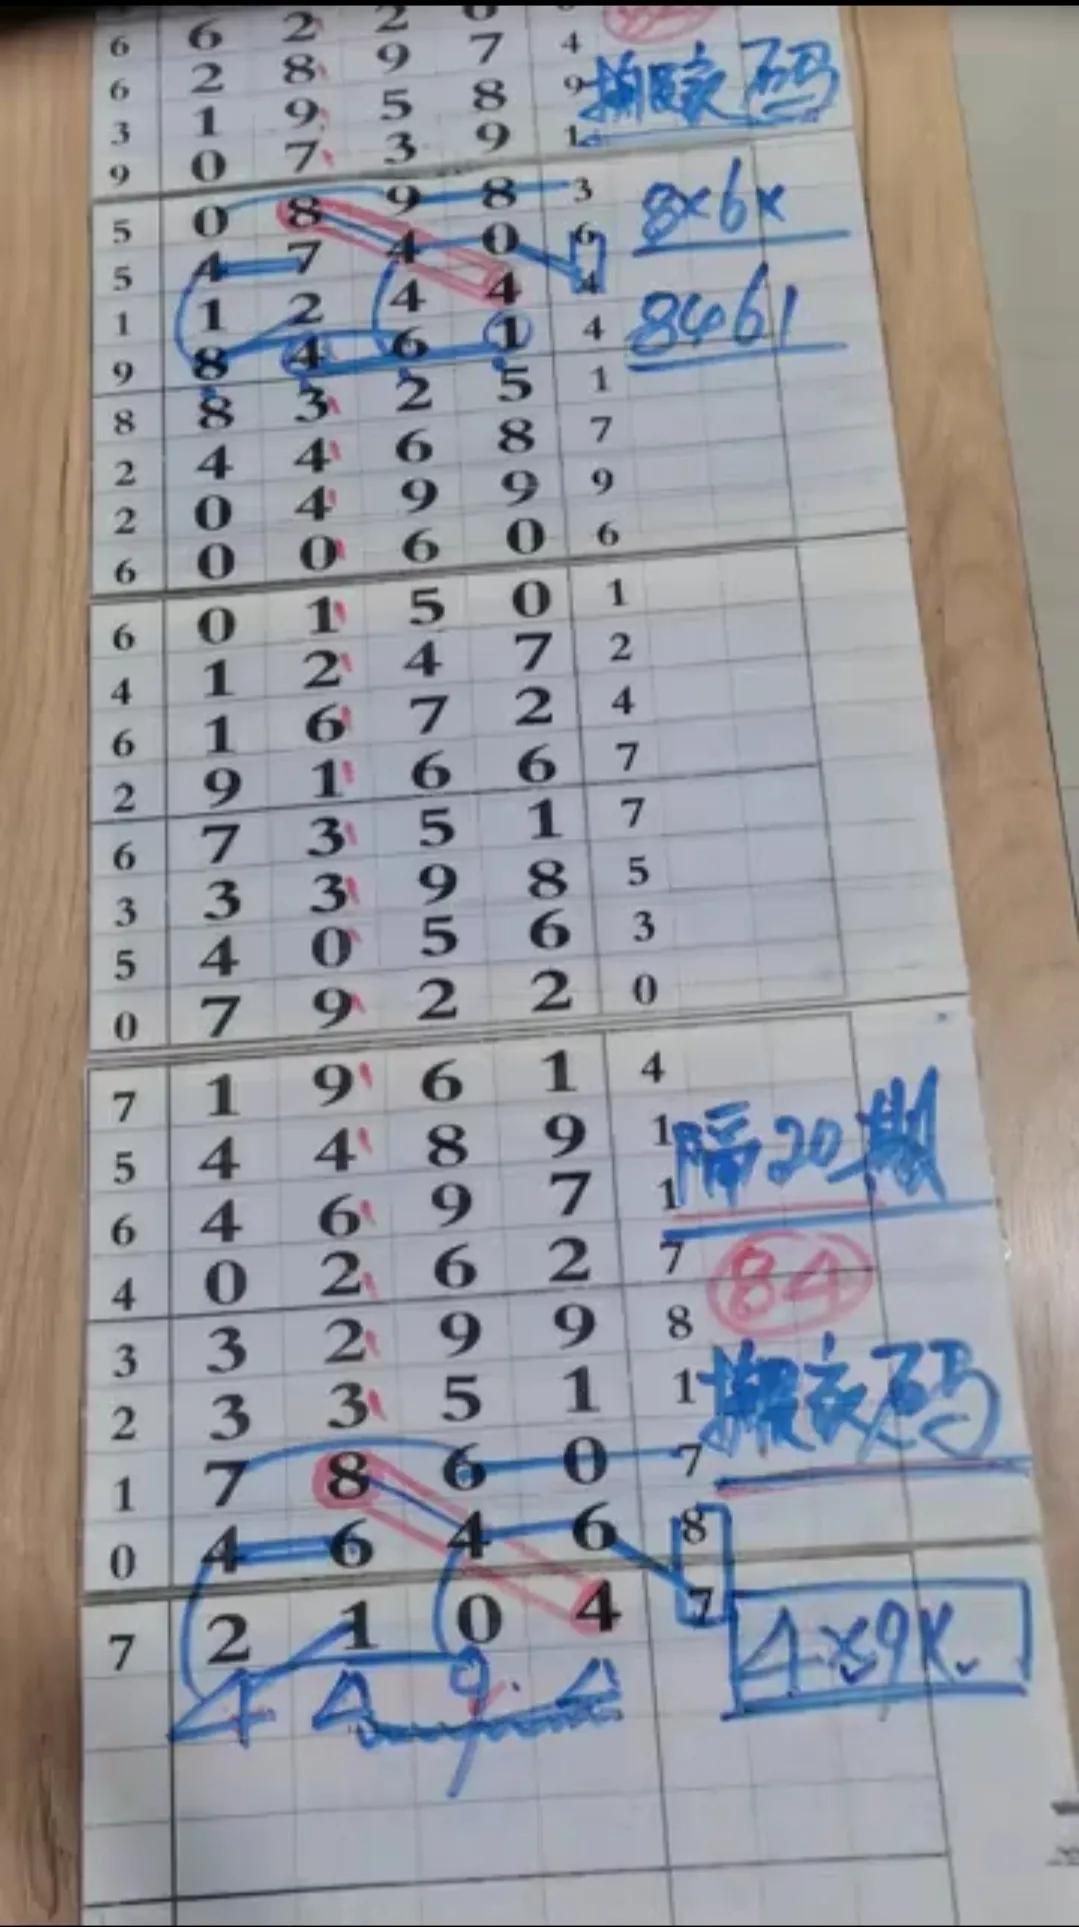 6 6 2 2 6
6 2 8 9 7 4
3 1 9 5 8 9 搬家码
9 0 7 3 9 1
5 0 8 9 8 3 8×6×
5 4 7 4 0 6
1 1 2 4 4 4 8461
9 8 4 6 1 4
8 8 3 2 5 1
2 4 4 6 8 7
2 0 4 9 9 9
6 0 0 6 0 6
6 0 1 5 0 1
4 1 2 4 7 2
6 1 6 7 2 4
2 9 1 6 6 7
6 7 3 5 1 7
3 3 3 9 8 5
5 4 0 5 6 3
0 7 9 2 2 0
7 1 9 6 1 4
5 4 4 8 9 1 隔20期
6 4 6 9 7 1
4 0 2 6 2 7 84
3 3 2 9 9 8
2 3 3 5 1 1 搬家码
1 7 8 6 0 7
0 4 6 4 6 8
7 2 1 0 4 7 4×9×
4 9